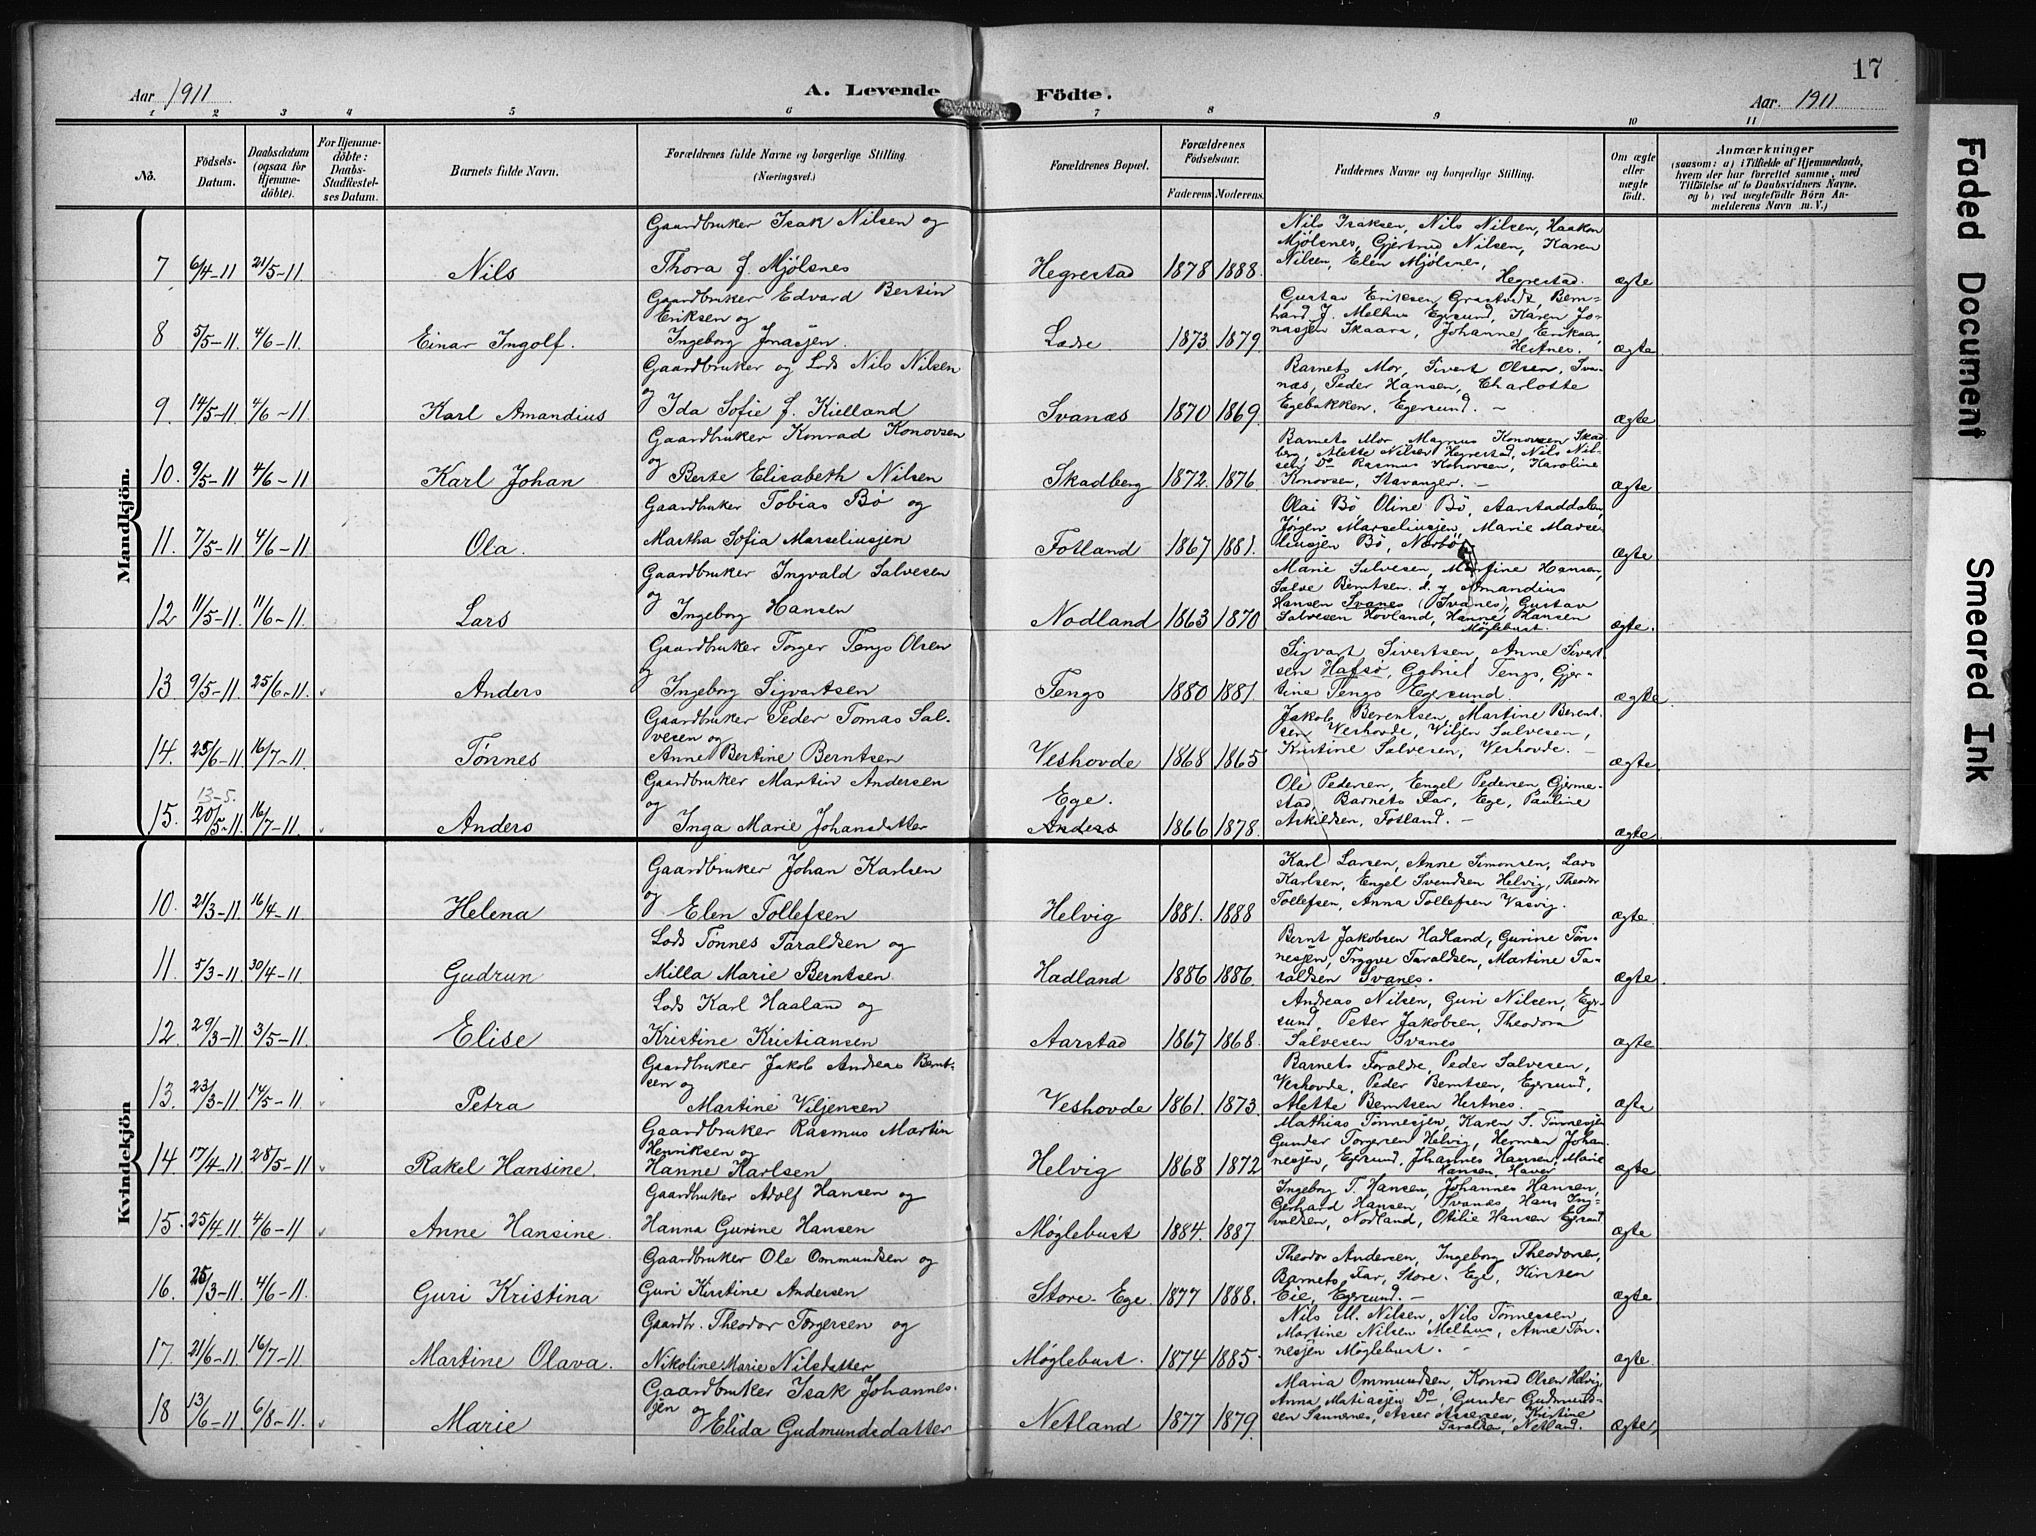 17
Aar 1911
A. Levende Födte.
Aar. 1911
1 2 3 4 5 6 7 8 9 10 11
No.
Födsels-Datum.
Daabsdatum (ogsaa for Hjemme-döbte).
For Hjemme-döbte: Daabs-Stadfæstel-ses Datum.
Barnets fulde Navn.
Forældrenes fulde Navne og borgerlige Stilling. (Næringsvei.)
Forældrenes Bopæl.
Forældrenes Födselsaar.
Faderens. Moderens.
Faddernes Navne og borgerlige Stilling.
Om ægte eller uægte født.
Anmærkninger
(saasom: a) i Tilfælde af Hjemmedaab, hvem der har forrettet samme, med Tilföielse af to Daabsvidners Navne, og b) ved uægtefödte Börn An-melderens Navn m. V.)
Mandkjön.
Gaardbruker Isak Nilsen og
Nils Isaksen, Nils Nilsen, Haakon
Mjølsnes, Gjertrud Nilsen, Karen
Nilsen, Elen Mjølsnes,
7 6/4-11 21/5-11 Nils Thora f. Mjølsnes Hegrestad 1878 1888. Hegrestad. ægte
Gaardbruker Edvard Bertin
Eriksen og
Gustav Eriksen Grastvedt, Bern-
hard J. Melhus Egersund, Karen Jo-
nasjen Skaara, Johanne Eriksen,
8 5/5-11. 4/6-11. Einar Ingolf. Ingeborg Jonasjen. Ladse 1873 1879. Hestnes. ægte
Gaardbruker og Lods Nils Nilsen
og
Barnets Mor, Sivert Olsen, Sva-
næs, Peder Hansen, Charlotte
9. 14/5-11 4/6-11. Karl Amandius Ida Sofie f. Kielland Svanæs 1870 1869. Egebakken, Egersund. - ægte
Gaardbruker Konrad Konovsen
og
Barnets Mor, Magnus Konovsen Skad-
berg, Alette Nilsen Hegrestad, Nils Nil-
sen Do Rasmus Kohovsen, Karoline
10. 9/5-11 4/6-11. Karl Johan Berte Elisabeth Nilsen Skadberg 1872. 1876. Konovsen, Stavanger. - ægte
Gaardbruker Tobias Bø og
Olai Bø, Oline Bø, Aarstaddalen,
Jørgen Marseliusjen, Marie Marse-
11. 7/5-11 4/6-11 Ola. Martha Sofia Marseliusjen Fotland 1867 1881. liusjen Bø, Nærbø ægte
Gaardbruker Ingvald Salvesen
og
Marie Salvesen, Martine Hansen,
Salve Berntsen d. y Amandius
Hansen Svanes (Svanes), Gustav
12 11/5-11. 11/6-11. Lars Ingeborg Hansen Nodland 1863 1870 Salvesen Hovland, Hanne Hansen ægte.
Møglebust.
Gaardbruker Torger Tengs Olsen
og
Sigvart Sivertsen, Anne Sivert-
sen Hafsø, Gabriel Tengs, Gjer-
13 9/5-11. 25/6-11. Anders Ingeborg Sigvartsen Tengs 1880 1881. tine Tengs Egersund. ægte.
Gaardbruker Peder Tomas Sal-
vesen og
Jakob Berentsen, Martine Berent-
sen Veshovde, Wiljen Salvesen,
14. 25/6-11. 16/7-11. Tønnes Anne Bertine Berntsen Veshovde 1868 1865 Kristine Salvesen, Veshovde. - ægte.
Gaardbruker Martin Andersen
og
13-5.
Ege.
Ole Pedersen, Engel Pedersen Gjerme-
stad, Barnets Far, Ege, Pauline
15. 20/5-11. 16/7-11. Anders Inga Marie Johansdatter Anders 1866 1878. Askildsen, Fotland. - ægte.
Kvindekjön
Gaardbruker Johan Karlsen
og
Karl Larsen, Anne Simonsen, Lars
Karlsen, Engel Svendsen Helvig, Theodor
10. 21/3-11. 16/4-11 Helena Elen Tollefsen Helvig 1881. 1888 Tollefsen, Anna Tollefsen Vasvig. ægte.
Lods Tønnes Taraldsen og
Bernt Jakobsen Hadland, Gurine Tøn-
nesjen, Tryggve Taraldsen, Martine Ta-
11. 5/3-11. 30/4-11. Gudrun Milla Marie Berntsen. Hadland 1886 1886 raldsen Svanes. ægte.
Lods Karl Haaland og
Andreas Nilsen, Guri Nilsen, Eger-
sund, Peter Jakobsen, Theodora
12. 29/3-11. 3/5-11. Elise Kristine Kristiansen Aarstad 1867 1868. Salvesen Svanes ægte
Gaardbruker Jakob Andreas Bernt-
sen og
Barnets Foralde, Peder Salvesen,
Veshovde, Peder Berntsen, Egersund,
13. 23/3-11. 14/5-11. Petra Martine Viljensen Veshovde 1861. 1873. Alette Berntsen Hestnes. ægte
Gaardbruker Rasmus Martin
Henriksen og
Mathias Tønnesjen, Karen S. Tønnesjen
Gunder Torgersen Helvig, Herman Johan-
nesjen, Egersund, Johannes Hansen, Marie
14 17/4-11. 28/5-11 Rakel Hansine. Hanne Karlsen Helvig 1868 1872 Hansen, Haver ægte.
Gaardbruker Adolf Hansen og
Ingeborg T. Hansen, Johannes Hansen,
Gerhard Hansen Svanes Hans Ing-
15. 25/4-11. 4/6-11 Anne Hansine. Hanna Gurine Hansen Møglebust 1884. 1887 valdsen, Nodland, Otilie Hansen Egersund ægte
Gaardbruker Ole Ommundsen og
Theodor Andersen, Ingeborg Theodorsen,
Barnets Far, Store-Ege, Kirsten
16. 25/3-11. 4/6-11. Guri Kristina Guri Kirstine Andersen Store-Ege. 1877 1888. Eie, Egersund. - ægte.
Gaardb. Theodor Torgersen og
Nils M. Nilsen, Nils Tønnessen,
Martine Nilsen Melhus, Anne Tøn-
17. 21/6-11. 16/7-11. Martine Olava. Nikoline Marie Nilsdatter Møglebust. 1874 1885. nesjen Møglebust. - ægte.
Gaardbruker Isak Johannes-
jen og
Maria Ommundsen, Konrad Olsen Helvig,
Anna Matiasjen Do, Gunder Gudmund-
sen Sannenes, Asser Assersen, Kristine
18 13/6-11. 6/8-11. Marie Elida Gudmundsdatter Netland 1877 1879. Taraldsen, Netland. ægte,
Faded Document
Smeared Ink